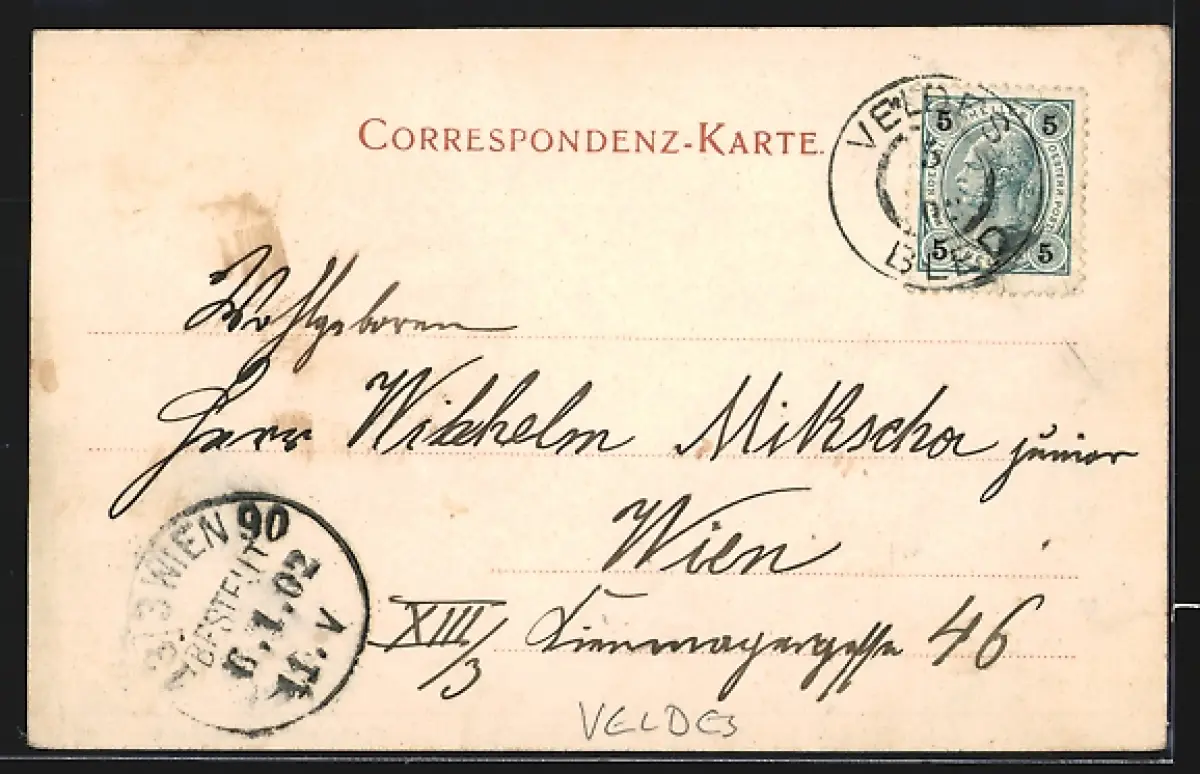 CORRESPONDENZ-KARTE.
VELDES
BLED
5 HELLER 5
5 5
Wohlgeboren
Herr Wilhelm Mikscha junior
Wien
XIII/3 Linenmayergasse 46
13/3 WIEN 90
BESTELLT
6.1.02
11.V
VELDES